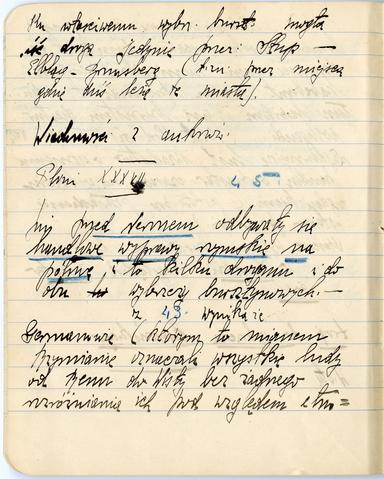 Ku właściwemu wybr. burszt. mogła
iść droga jedynie przez: Słups —
Elbląg - Königsberg (t.zn. przez miejsca
gdzie dziś leżą te miasta).
Wiadomości z autorów:
Plini XXXVII
45
iż przed Neronem odbywały się
handlowe wyprawy rzymskie na
północ, i to kilku drogami i do
obu wybrzeży bursztynowych. —
z 43. wynika iż
Germanowie (którym to mianem
Rzymianie oznaczali wszystkie ludy
od Renu do Wisły bez żadnego
rozróżniania ich pod względem etno=